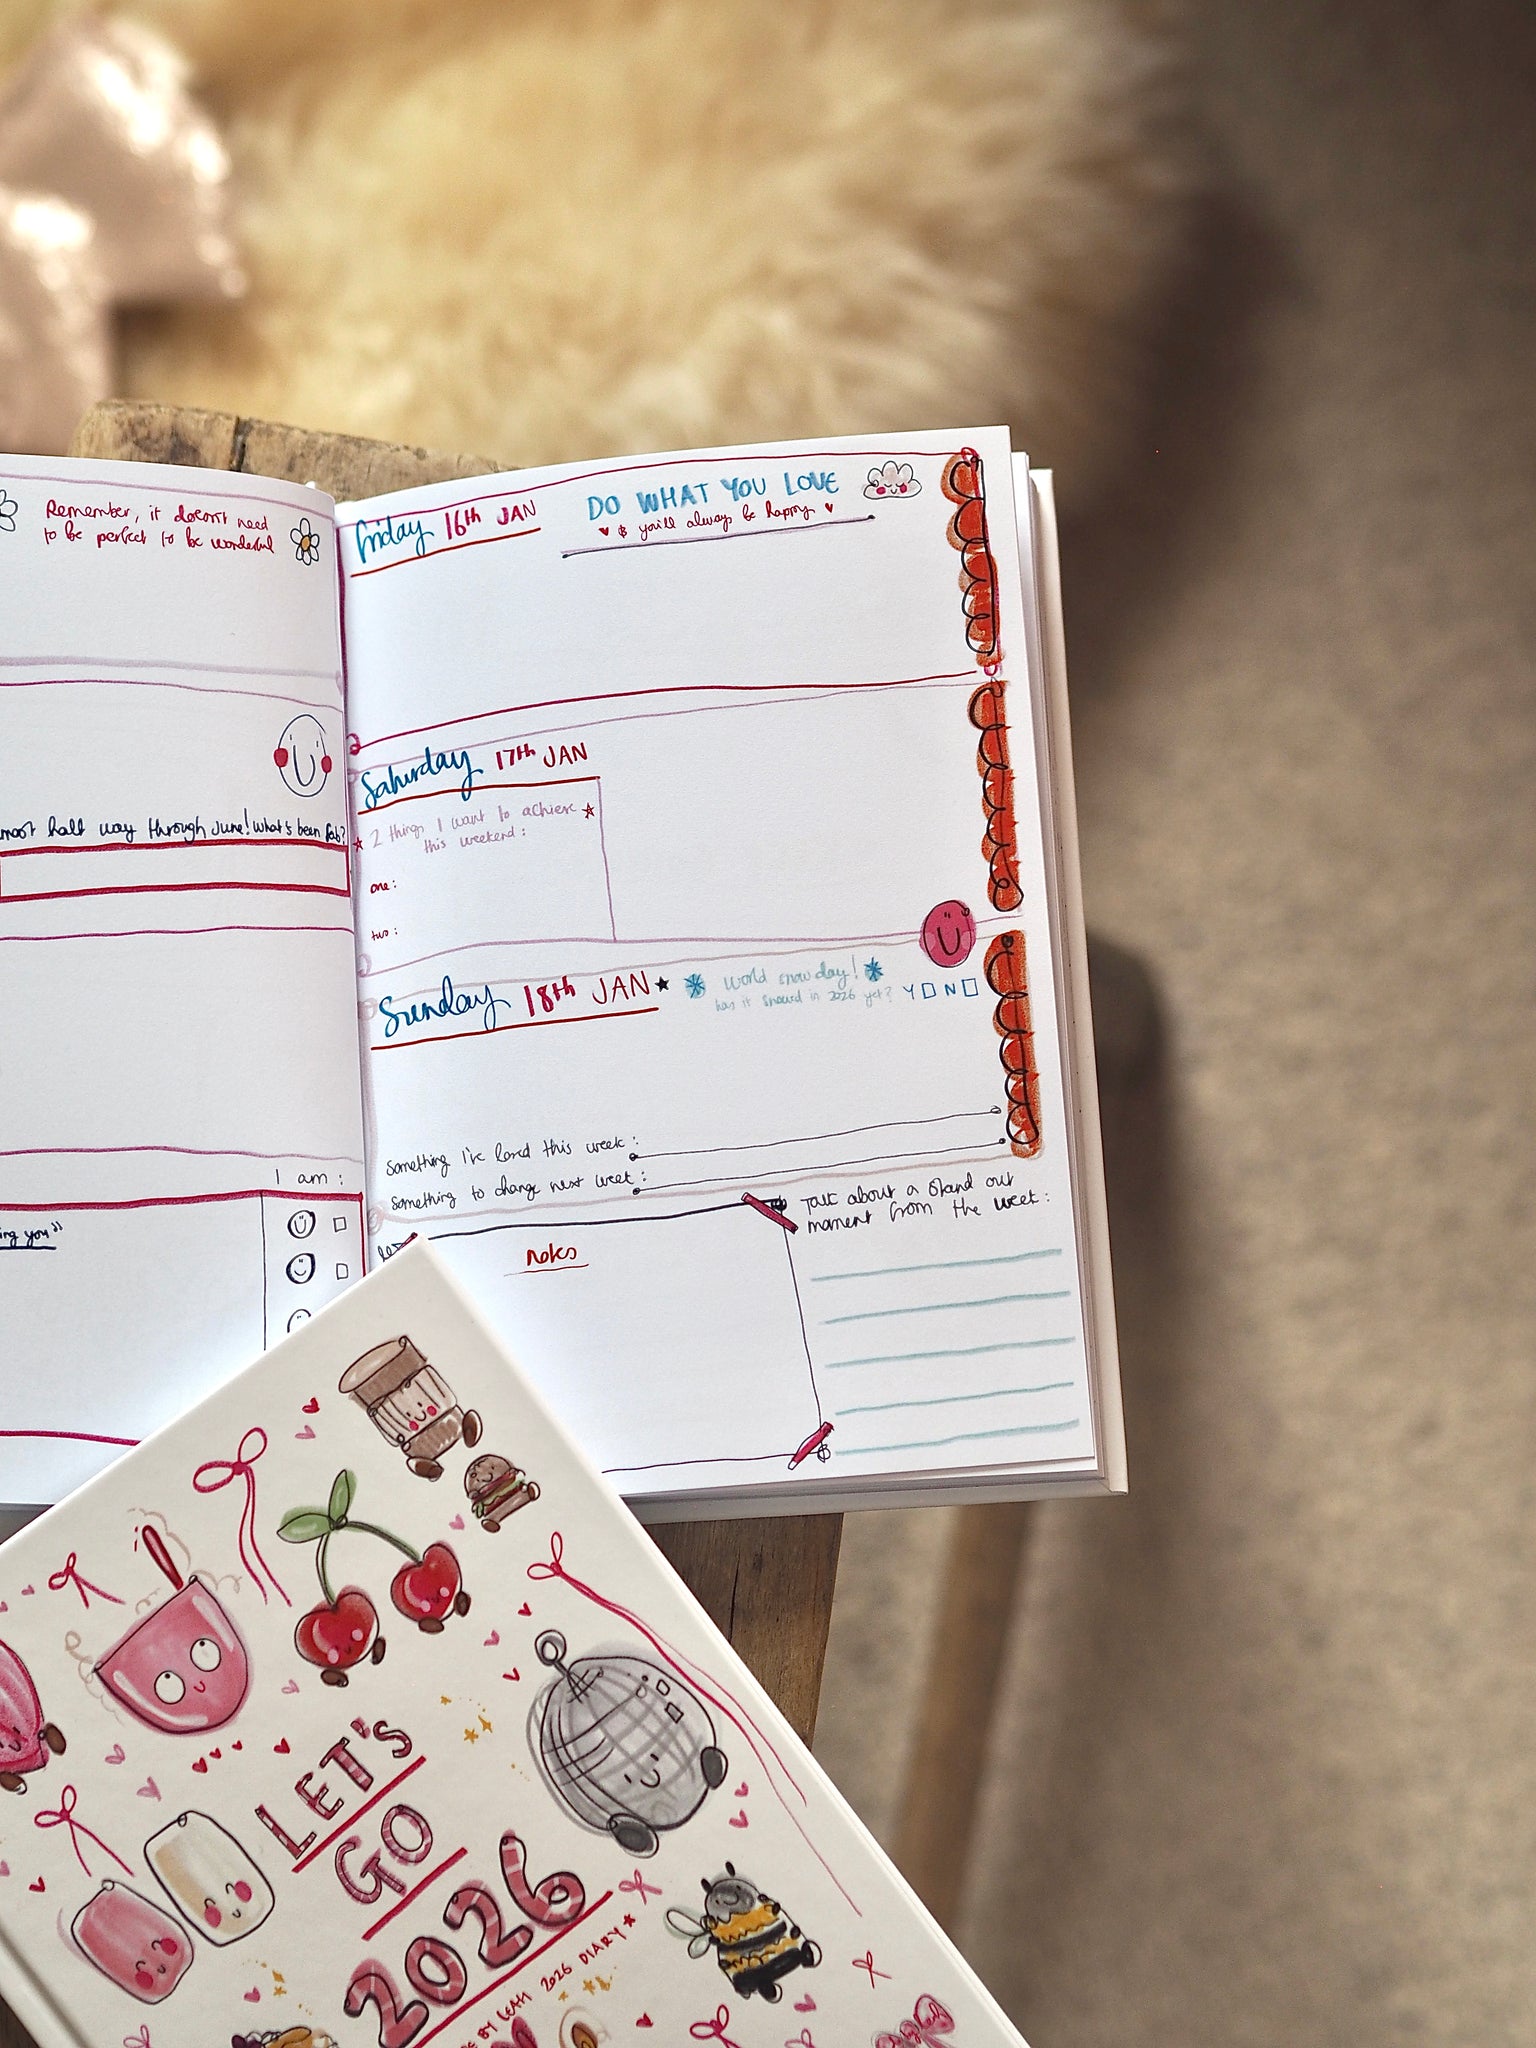 Remember, it doesn't need
to be perfect to be wonderful
half way through June! What's been fab?
I am:
ing you"
Friday 16th JAN
DO WHAT YOU LOVE
& you'll always be happy
Saturday 17th JAN
2 things I want to achieve
this weekend:
one:
two:
Sunday 18th JAN
World snow day!
has it snowed in 2026 yet? Y N
Something I've loved this week:
Something to change next week:
notes
Talk about a stand out
moment from the week:
LET'S
GO
2026
BY LEAH 2026 DIARY